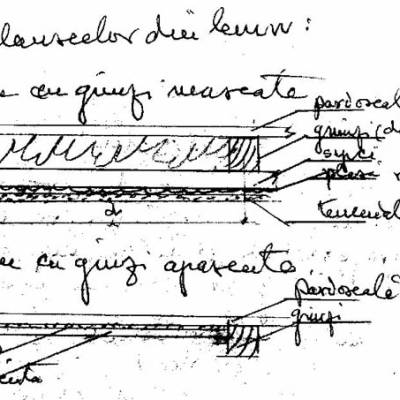 planseelor din lemn:
cu grinzi mascate
pardoseală
grinzi (d
șipci
plasă
tencuială
cu grinzi aparente
pardoseală
grinzi